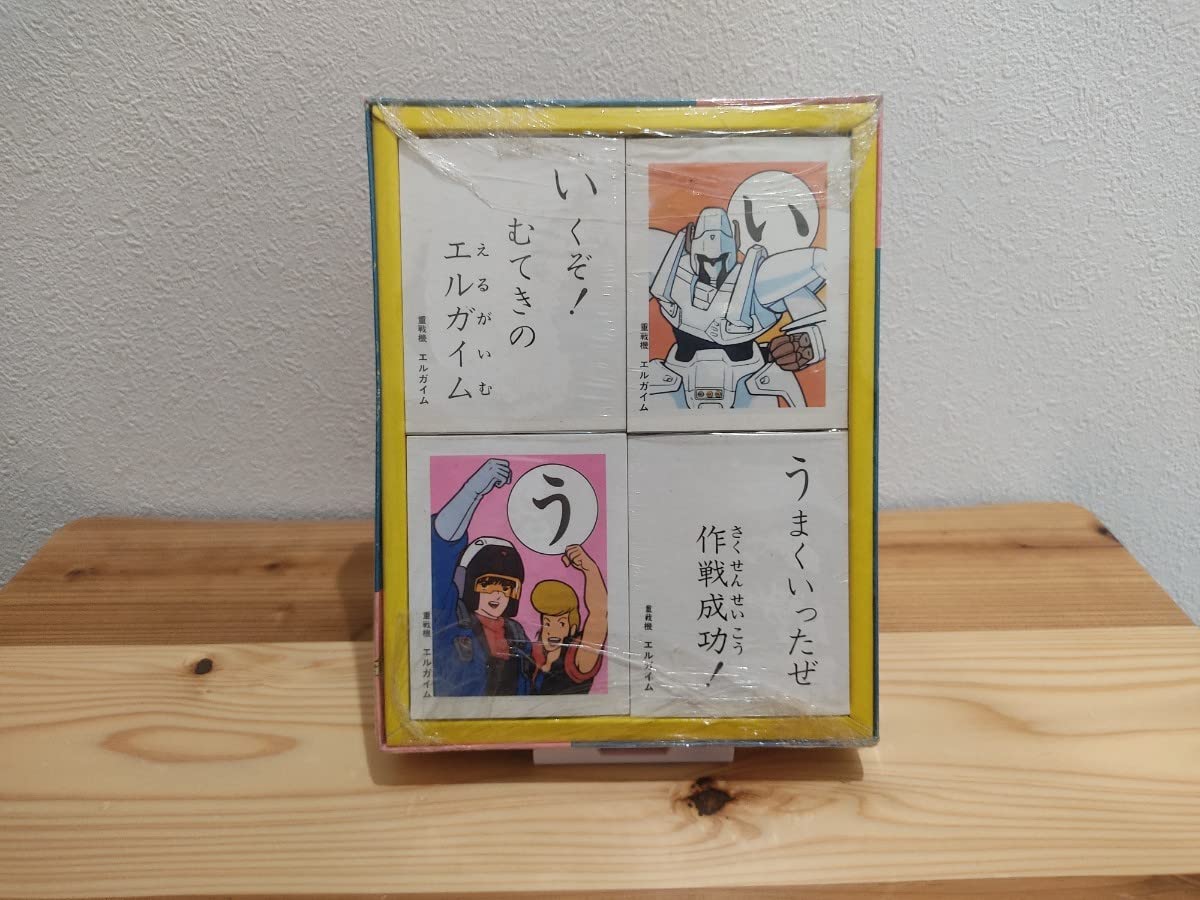 いくぞ！
むてきの
エルガイム
えるがいむ
重戦機 エルガイム
い
重戦機 エルガイム
う
重戦機 エルガイム
うまくいったぜ
作戦成功！
さくせんせいこう
重戦機 エルガイム